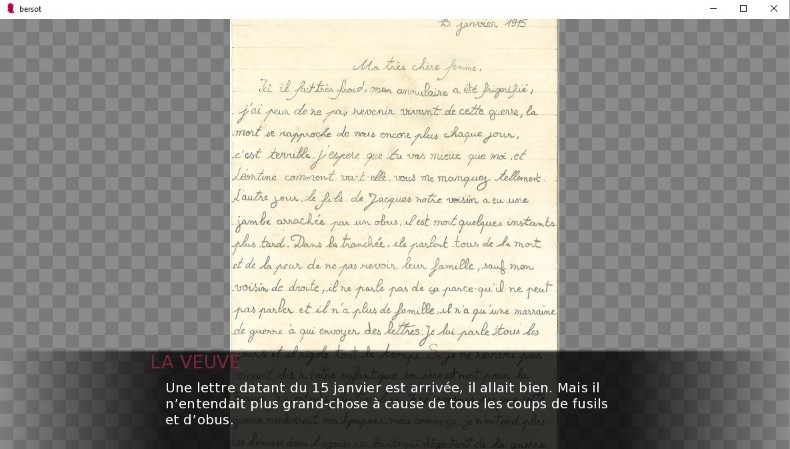 bersot
15 janvier 1915
Ma très chère femme,
Ici il fait très froid, mon annulaire a été frigorifié,
j'ai peur de ne pas revenir vivant de cette guerre, la
mort se rapproche de nous encore plus chaque jour,
c'est terrible. j'espère que tu vas mieux que moi, et
Léontine comment va-t-elle, vous me manquez tellement.
L'autre jour, le fils de Jacques notre voisin a eu une
jambe arrachée par un obus, il est mort quelques instants
plus tard. Dans la tranchée, ils parlent tous de la mort
et de la peur de ne pas revoir leur famille, sauf mon
voisin de droite, il ne parle pas de ça parce-qu'il ne peut
pas parler et il n'a plus de famille, il n'a qu'une marraine
de guerre à qui envoyer des lettres. Je lui parle tous les
jours et il rigole tout le temps. Si je ne reviens pas
LA VEUVE
vivant, dis à notre enfant que son père est mort pour la
Une lettre datant du 15 janvier est arrivée, il allait bien. Mais il
n'entendait plus grand-chose à cause de tous les coups de fusils
et d'obus.